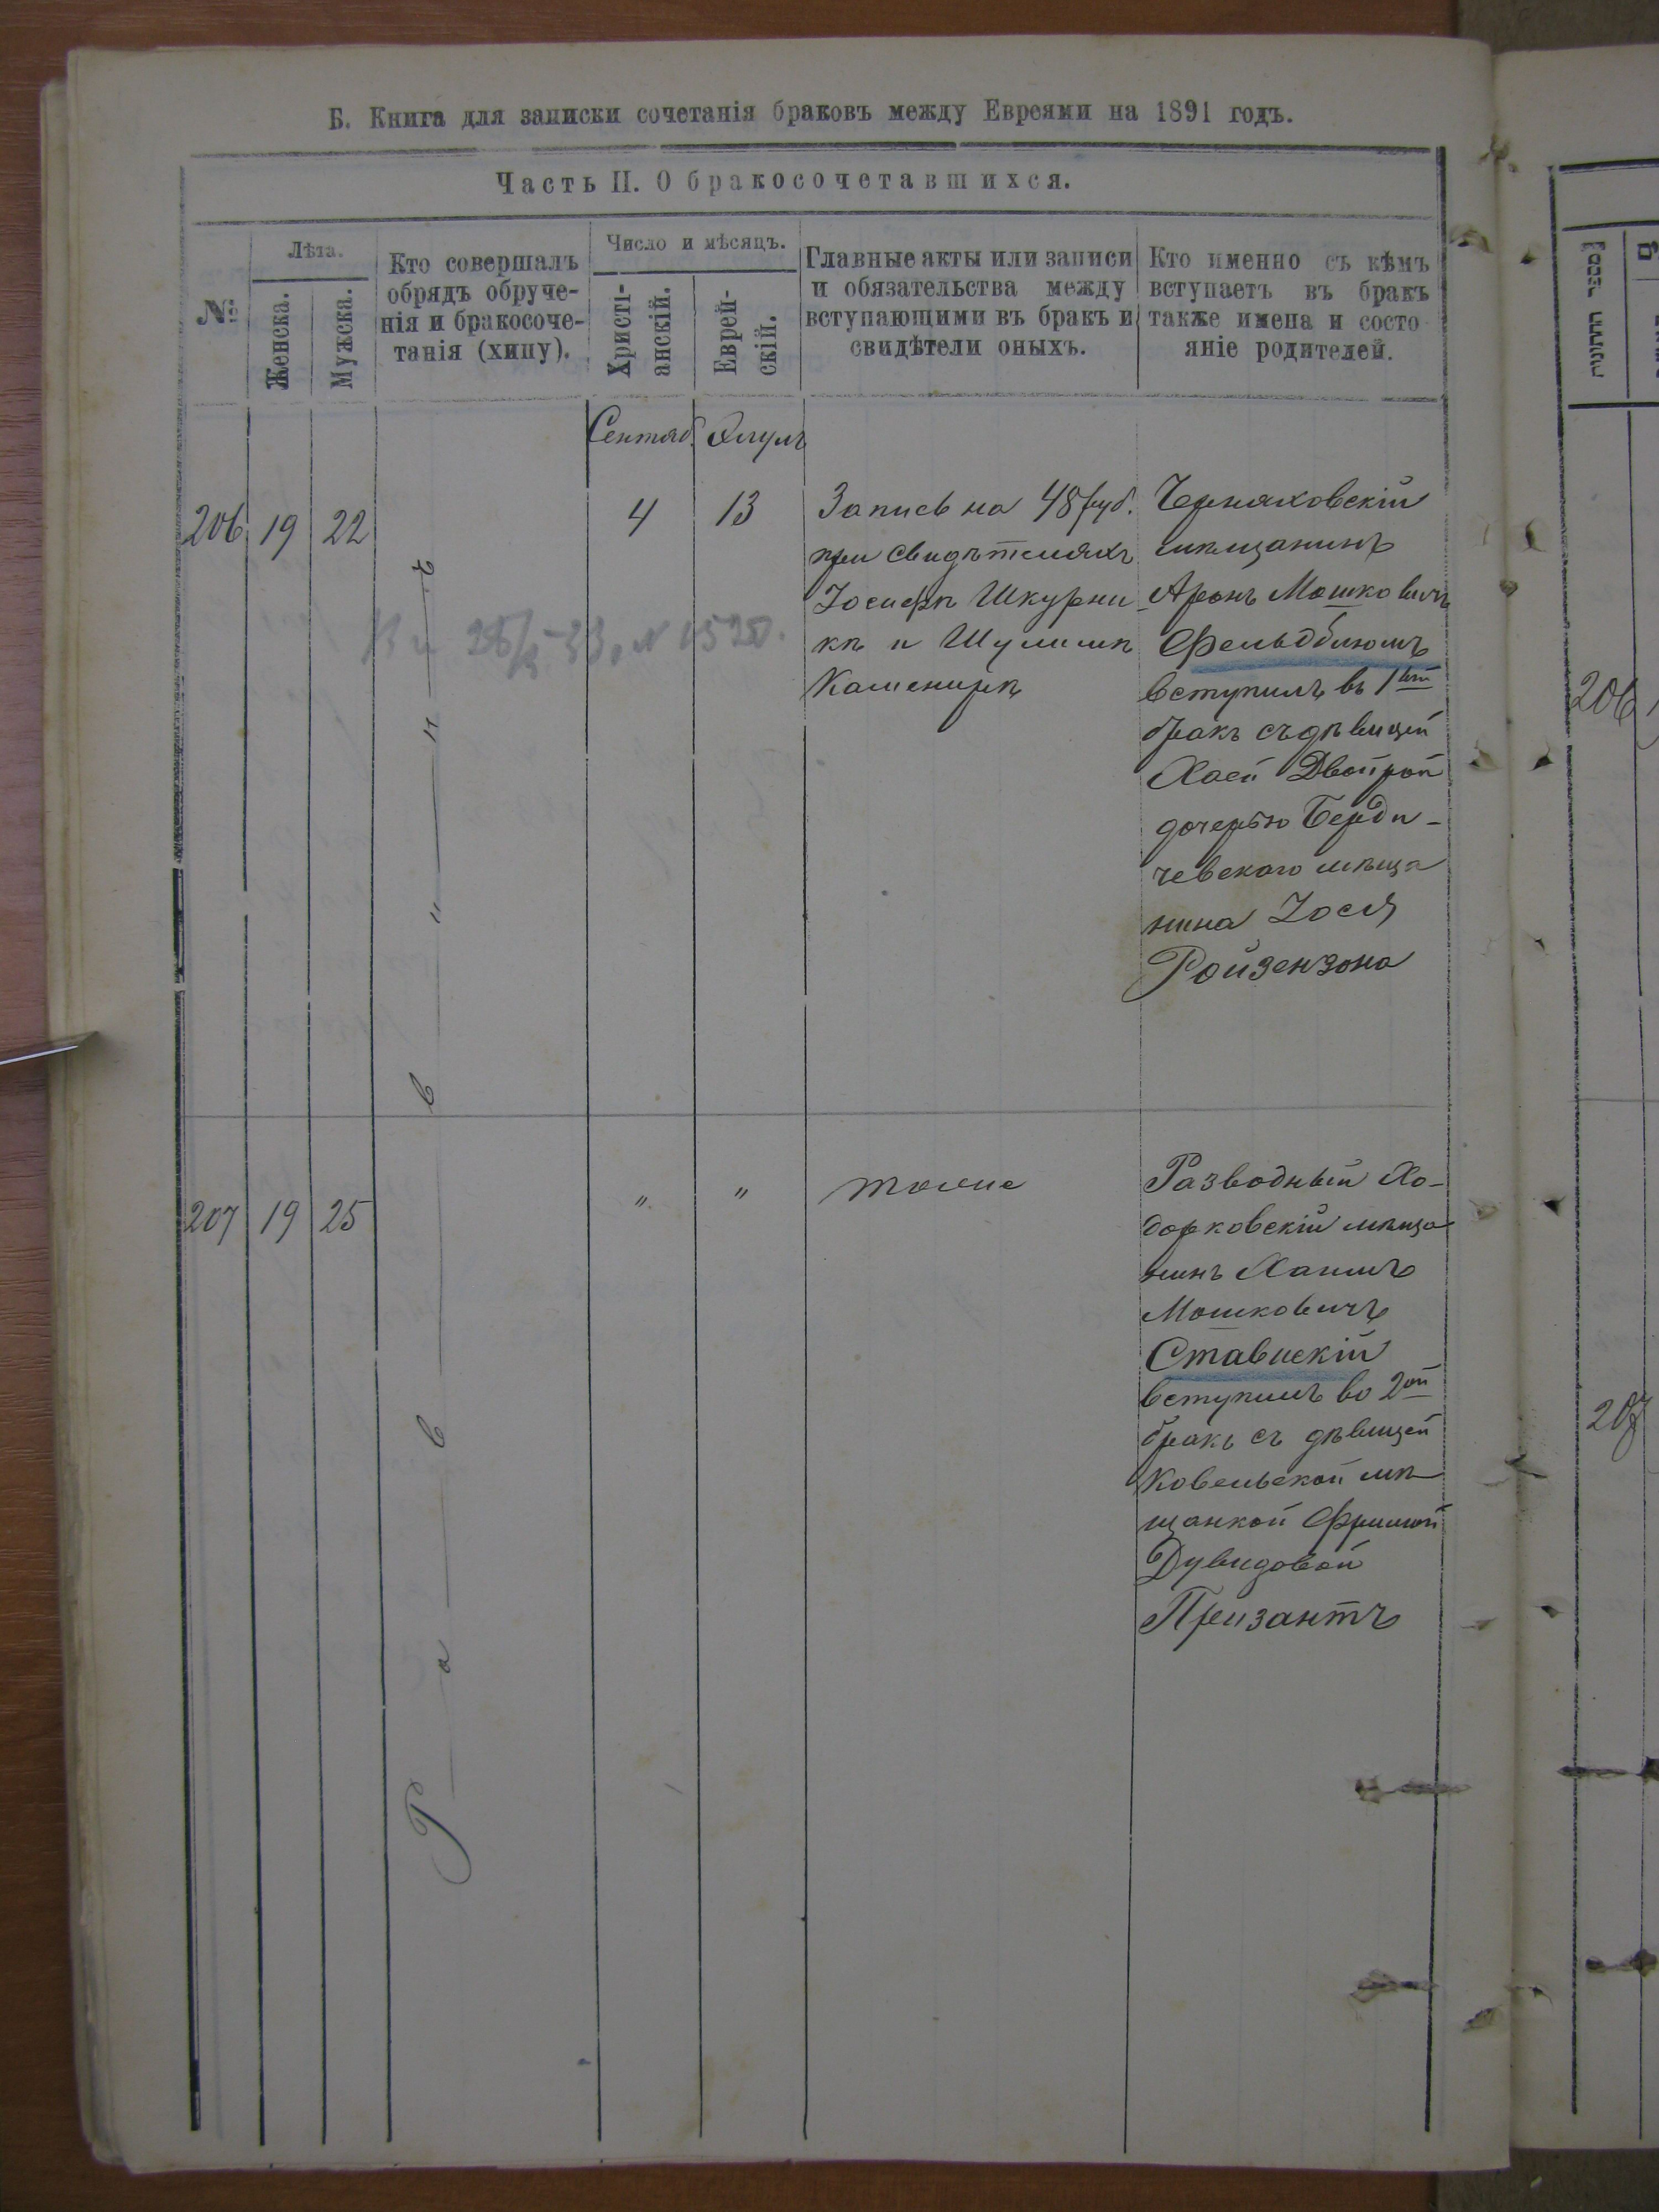 Б. Книга для записки сочетанія браковъ между Евреями на 1891 годъ.
Часть II. О бракосочетавшихся.
№
Лѣта.
Женска.
Мужска.
Кто совершалъ
обрядъ обруче-
нія и бракосоче-
танія (хипу).
Число и мѣсяцъ.
Христі-
анскій.
Еврей-
скій.
Главные акты или записи
и обязательства между
вступающими въ бракъ и
свидѣтели оныхъ.
Кто именно съ кѣмъ
вступаетъ въ бракъ
также имена и состо
яніе родителей.
Сентяб. Элулъ
206 19 22
4 13
Запись на 48 руб.
при свидѣтеляхъ
Іосифѣ Шкурни
кѣ и Шулимѣ
Каменирѣ
Черняховскій
мѣщанинъ
Аронъ Мошковичъ
Фельдблюмъ
вступилъ въ 1ый
бракъ съ дѣвицей
Хаей Двойрой
дочерью Берди-
чевскаго мѣща
нина Іося
Ройзензона
Р а в в и н ъ
207 19 25
" "
тоже
Разводный Хо-
дорковскій мѣща
нинъ Хаимъ
Мошковичъ
Ставискій
вступилъ во 2ой
бракъ съ дѣвицей
Ковельской мѣ
щанкой Фримой
Дувидовой
Презантъ
מספר החתונות
206
207